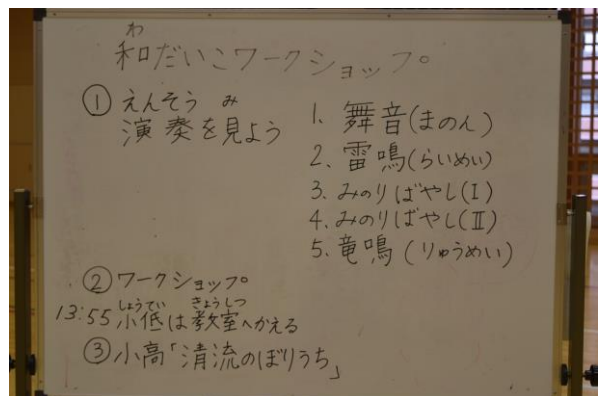 わ
和だいこワークショップ。
① えんそう み
演奏を見よう
1. 舞音(まのん)
2. 雷鳴(らいめい)
3. みのりばやし(Ⅰ)
4. みのりばやし(Ⅱ)
5. 竜鳴(りゅうめい)
② ワークショップ。
しょうてい きょうしつ
13:55 小低は教室へかえる
③ 小高「清流のぼりうち」